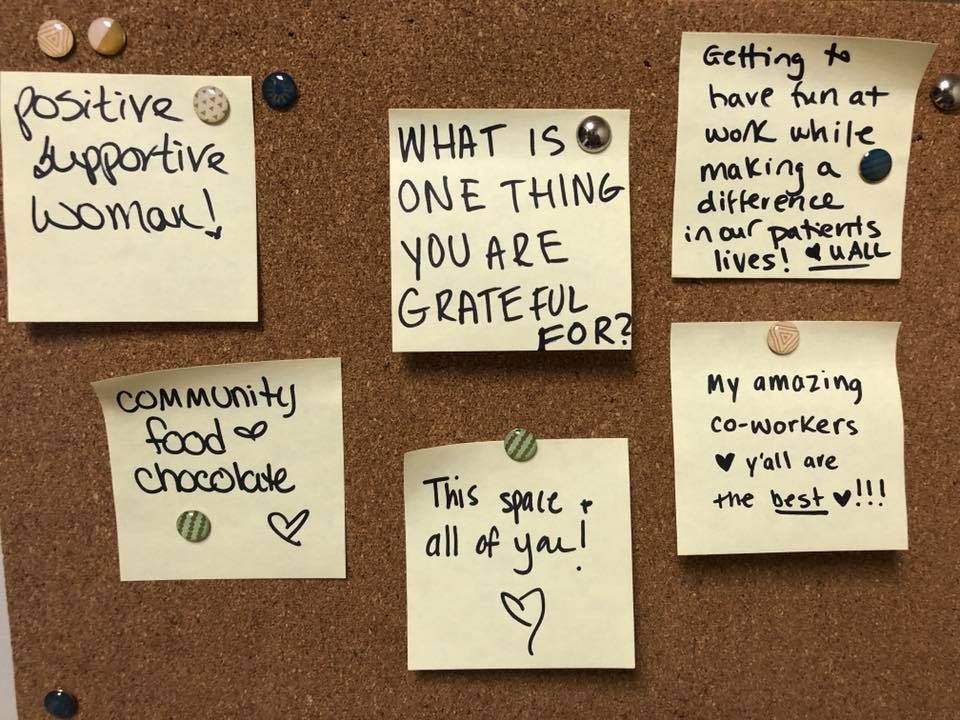 positive
supportive
woman!
WHAT IS
ONE THING
YOU ARE
GRATEFUL
FOR?
Getting to
have fun at
work while
making a
difference
in our patients
lives! ♥ u ALL
community
food ♡
chocolate
♡
This space +
all of you!
♡
My amazing
co-workers
♥ y'all are
the best ♥!!!